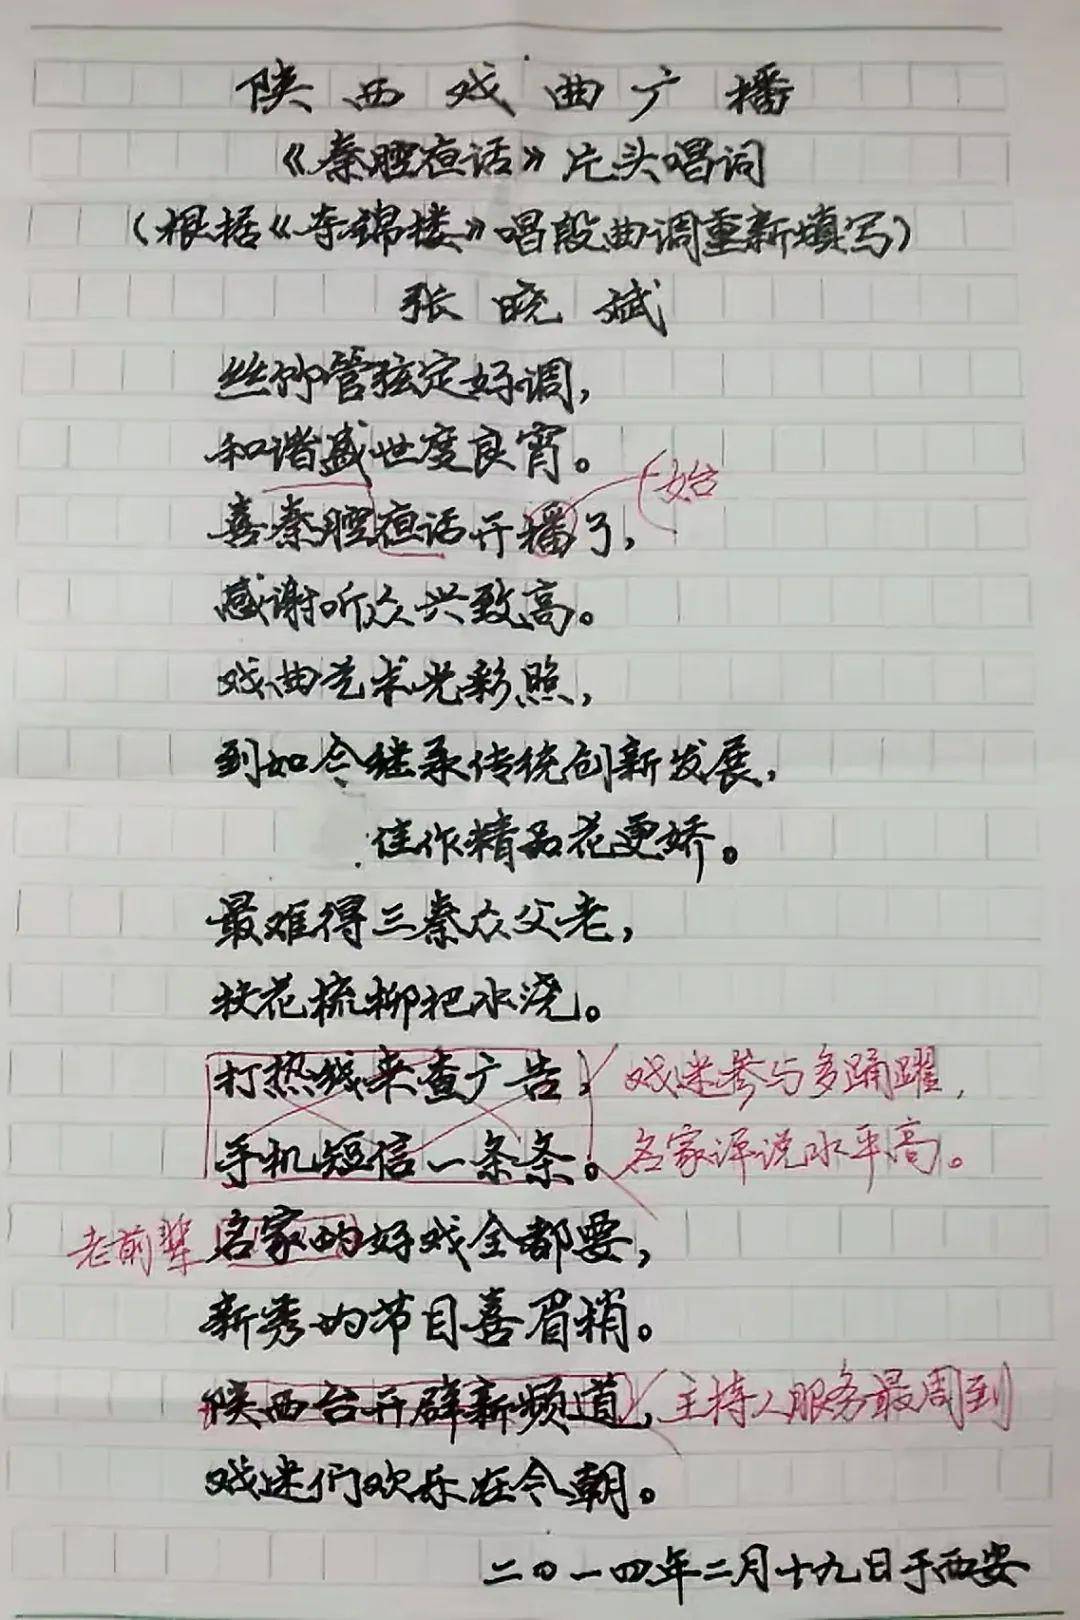 陕西戏曲广播
《秦腔夜话》片头唱词
（根据《夺锦楼》唱段曲调重新填写）
张晓斌
丝竹管弦定好调，
和谐盛世度良宵。
喜秦腔夜话开播了，
始
感谢听众兴致高。
戏曲艺术光彩照，
到如今继承传统创新发展，
佳作精品花更娇。
最难得三秦众父老，
扶花梳柳把水浇。
打热线来查广告，
戏迷参与多踊跃，
手机短信一条条。
名家评说水平高。
老前辈
名家的好戏全都要，
新秀的节目喜眉梢。
陕西台开辟新频道，
主持人服务最周到
戏迷们欢乐在今朝。
二〇一四年二月十九日于西安